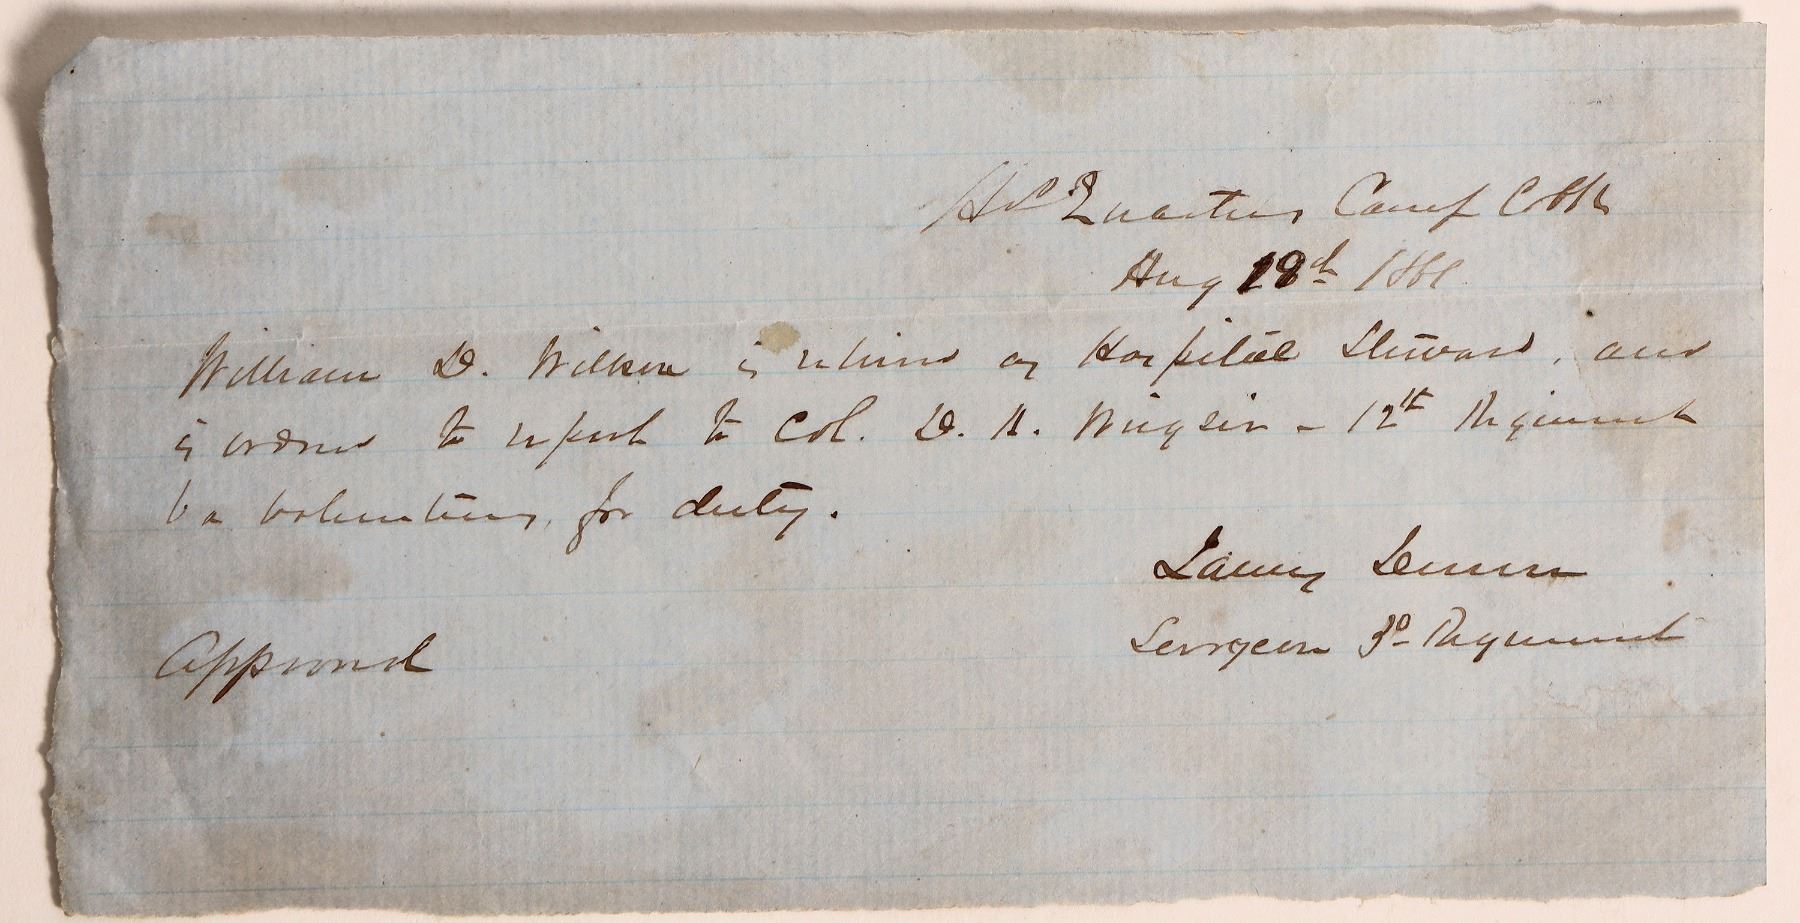 Hd Quarters Camp Cobb
Aug 18th 1861
William D. Wilson is relieved as Hospital Steward, and
is ordered to report to Col. D. A. - 12th Regiment
Va Volunteers, for duty.
Surgeon 3d Regiment
Approved